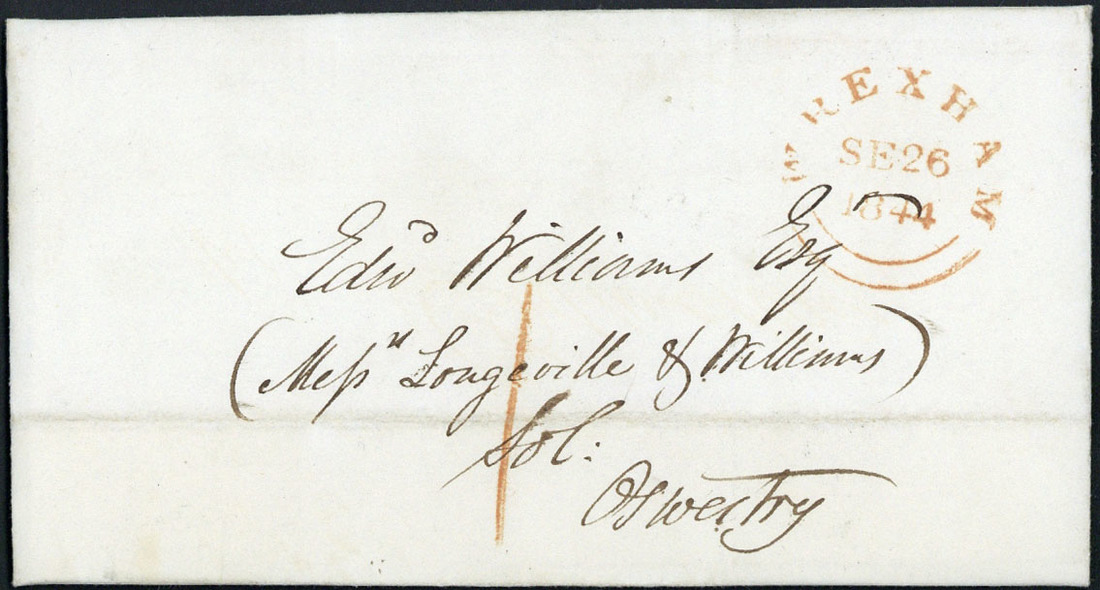 WREXHAM
SE26
1844
Edwd Williams Esq
(Messrs Longueville & Williams)
Sol:
Oswestry
1